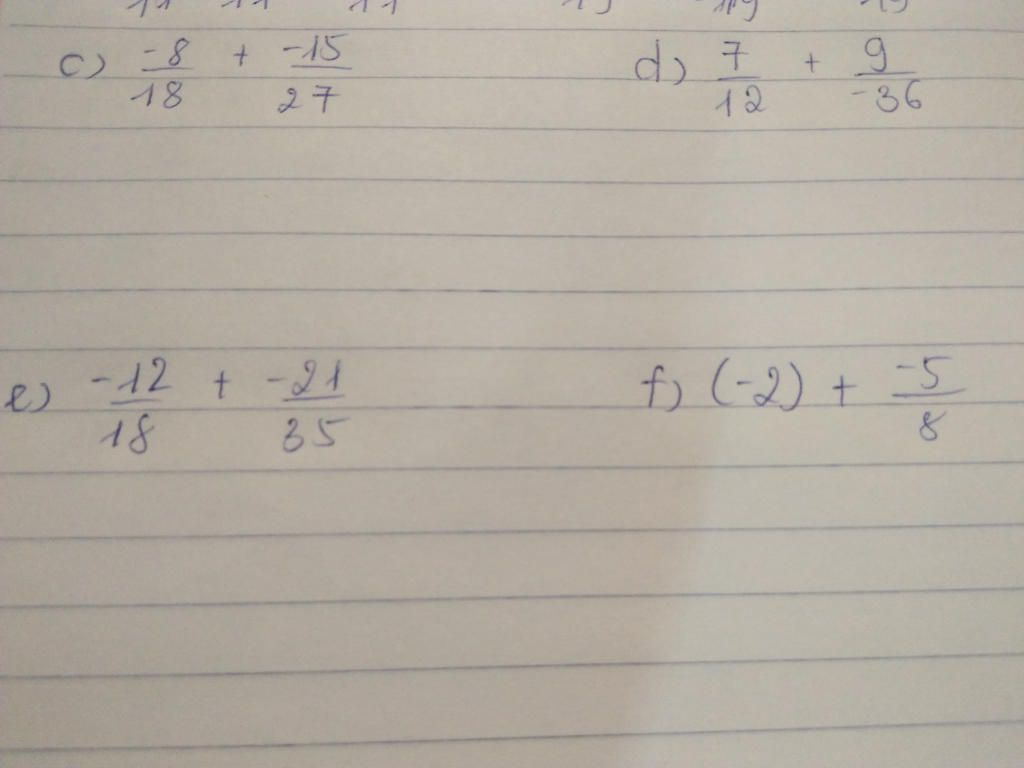 c) -8/18 + -15/27 d) 7/12 + 9/-36
e) -12/18 + -21/35 f) (-2) + -5/8